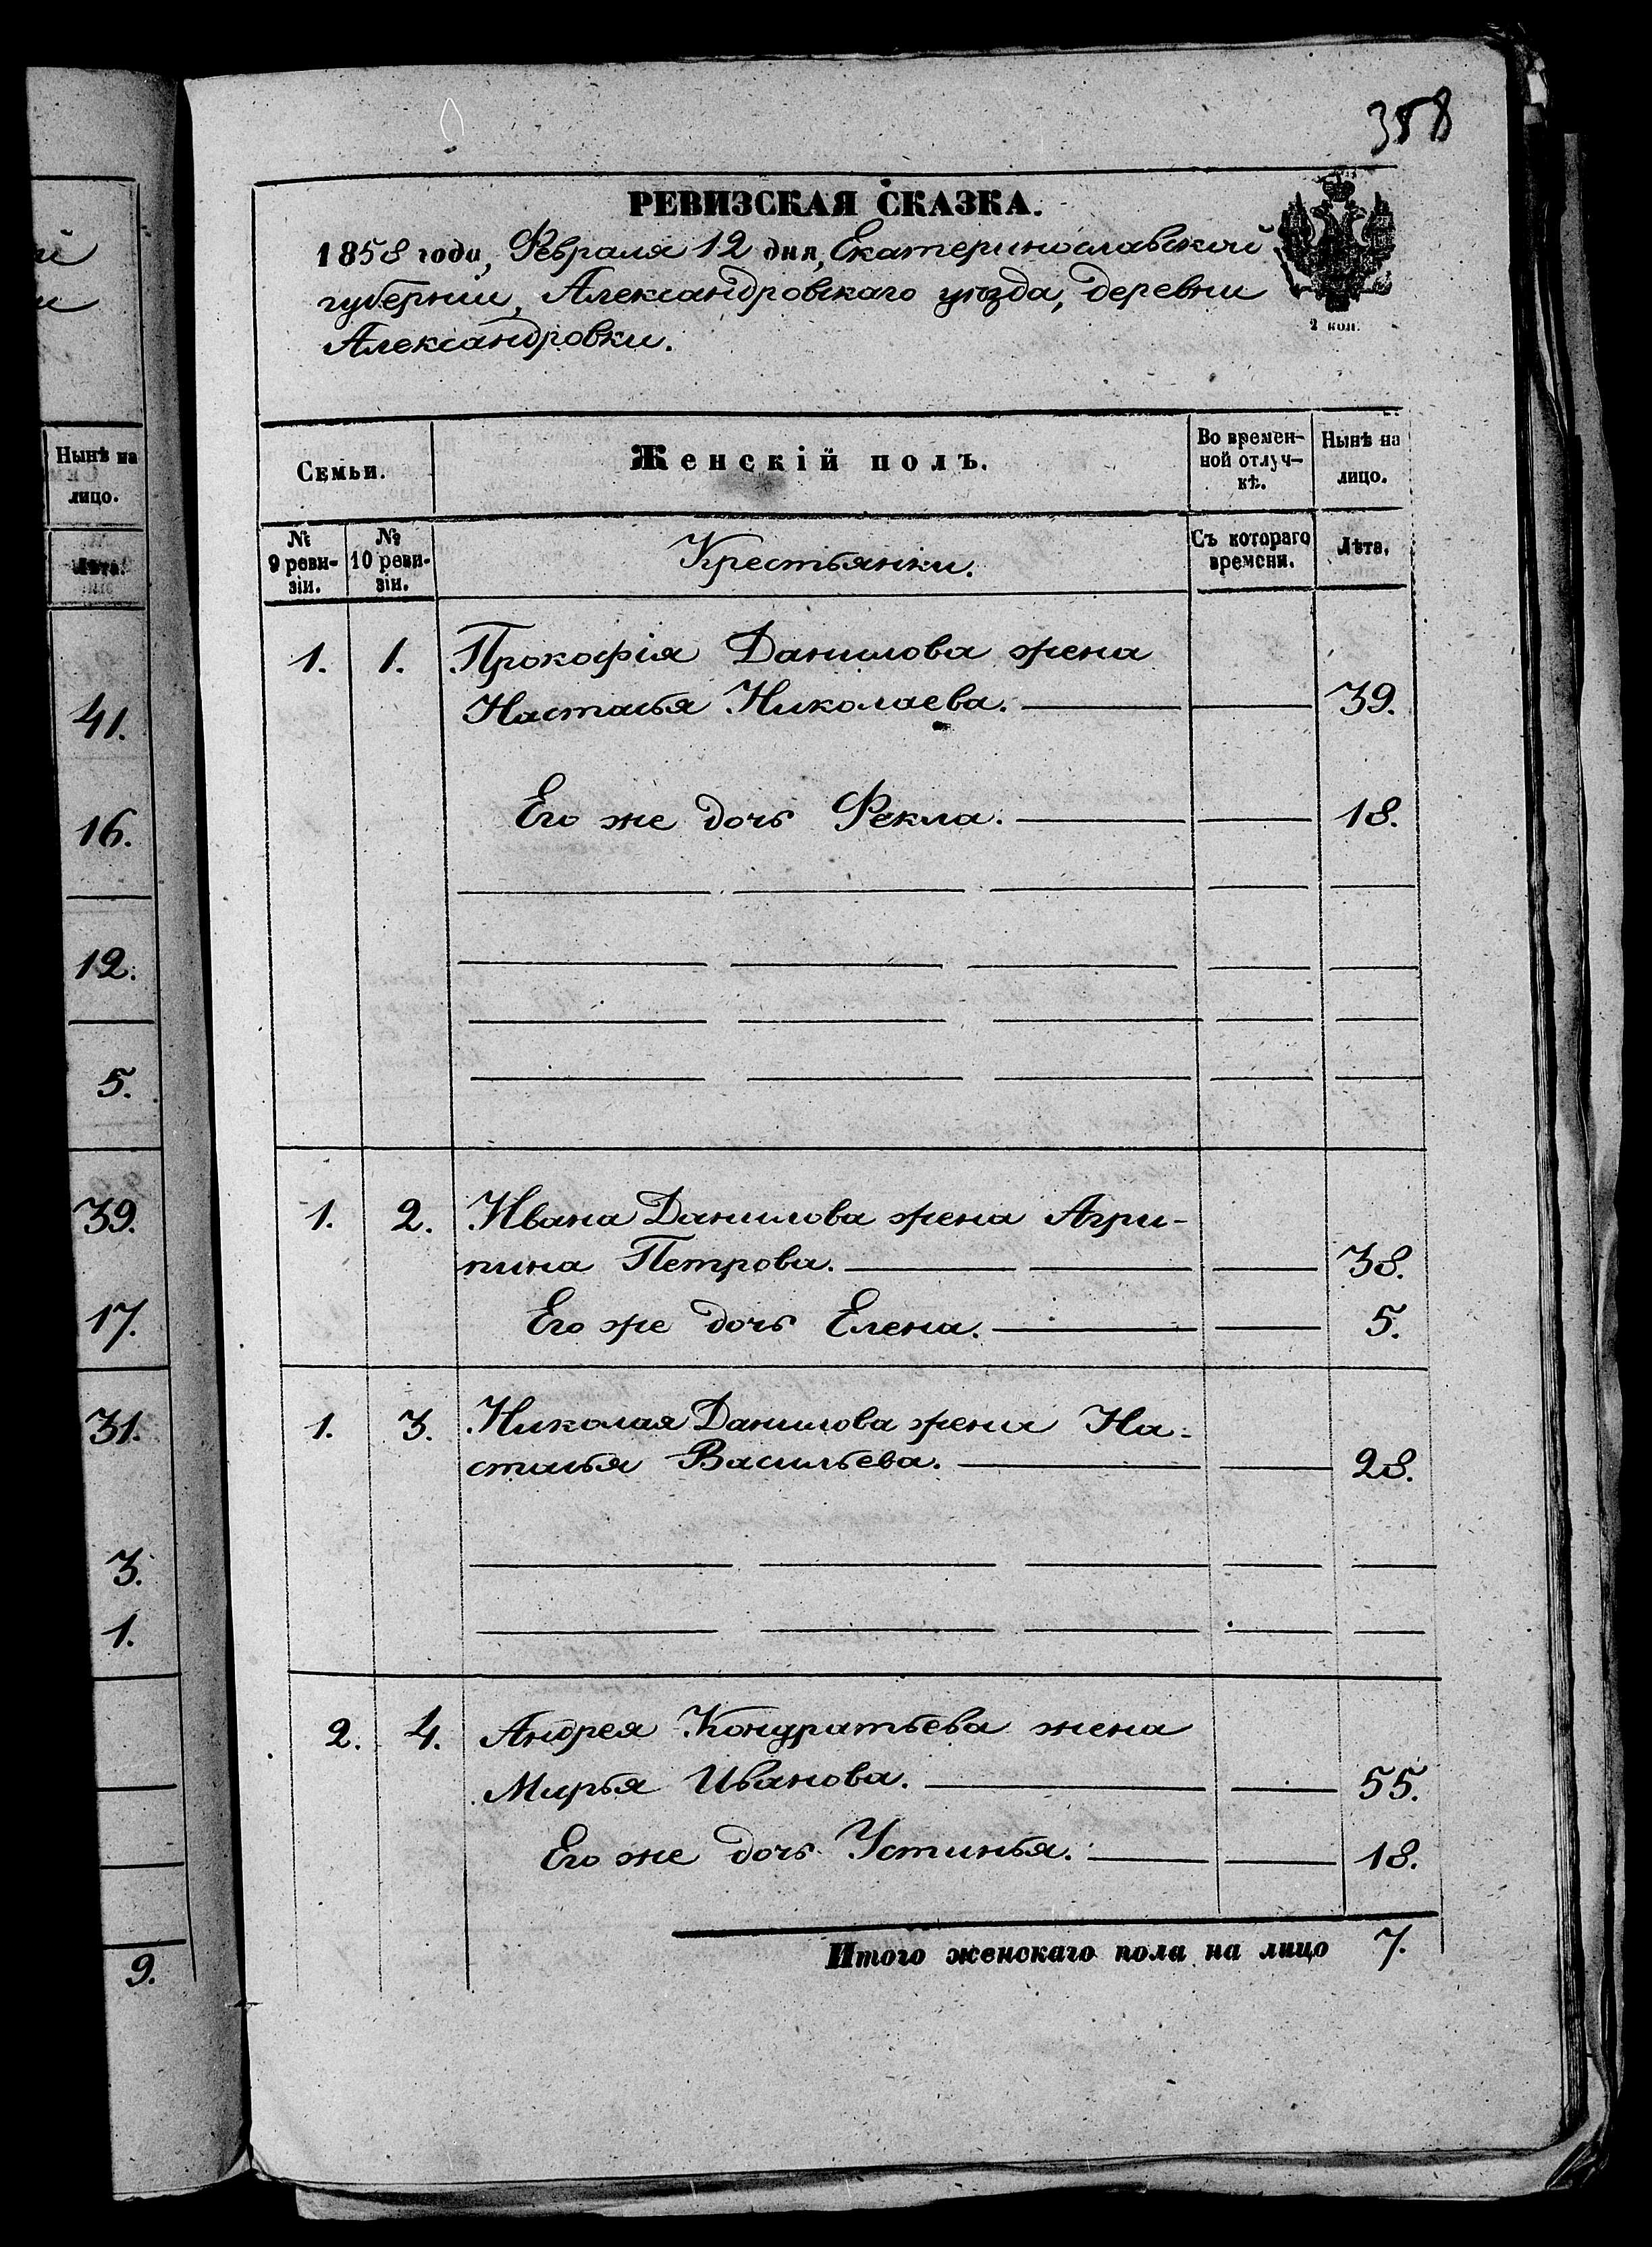 й
и
Нынѣ на
лицо.
Лѣта.
41.
16.
12.
5.
39.
17.
31.
3.
1.
9.
358
РЕВИЗСКАЯ СКАЗКА.
1858 года, Февраля 12 дня, Екатеринославской
губерніи, Александровскаго уѣзда, деревни
Александровки.
2 коп.
Семьи.
Женскій полъ.
Во времен-
ной отлуч-
кѣ.
Нынѣ на
лицо.
№
9 реви-
зіи.
№
10 реви-
зіи.
Крестьянки.
Съ котораго
времени.
Лѣта.
1. 1. Прокофія Данилова жена
Настасья Николаева. 39.
Его же дочь Фекла. 18.
1. 2. Ивана Данилова жена Агри-
пина Петрова. 38.
Его же дочь Елена. 5.
1. 3. Николая Данилова жена На-
стасья Васильева. 28.
2. 4. Андрея Кондратьева жена
Марья Иванова. 55.
Его же дочь Устинья. 18.
Итого женскаго пола на лицо 7.